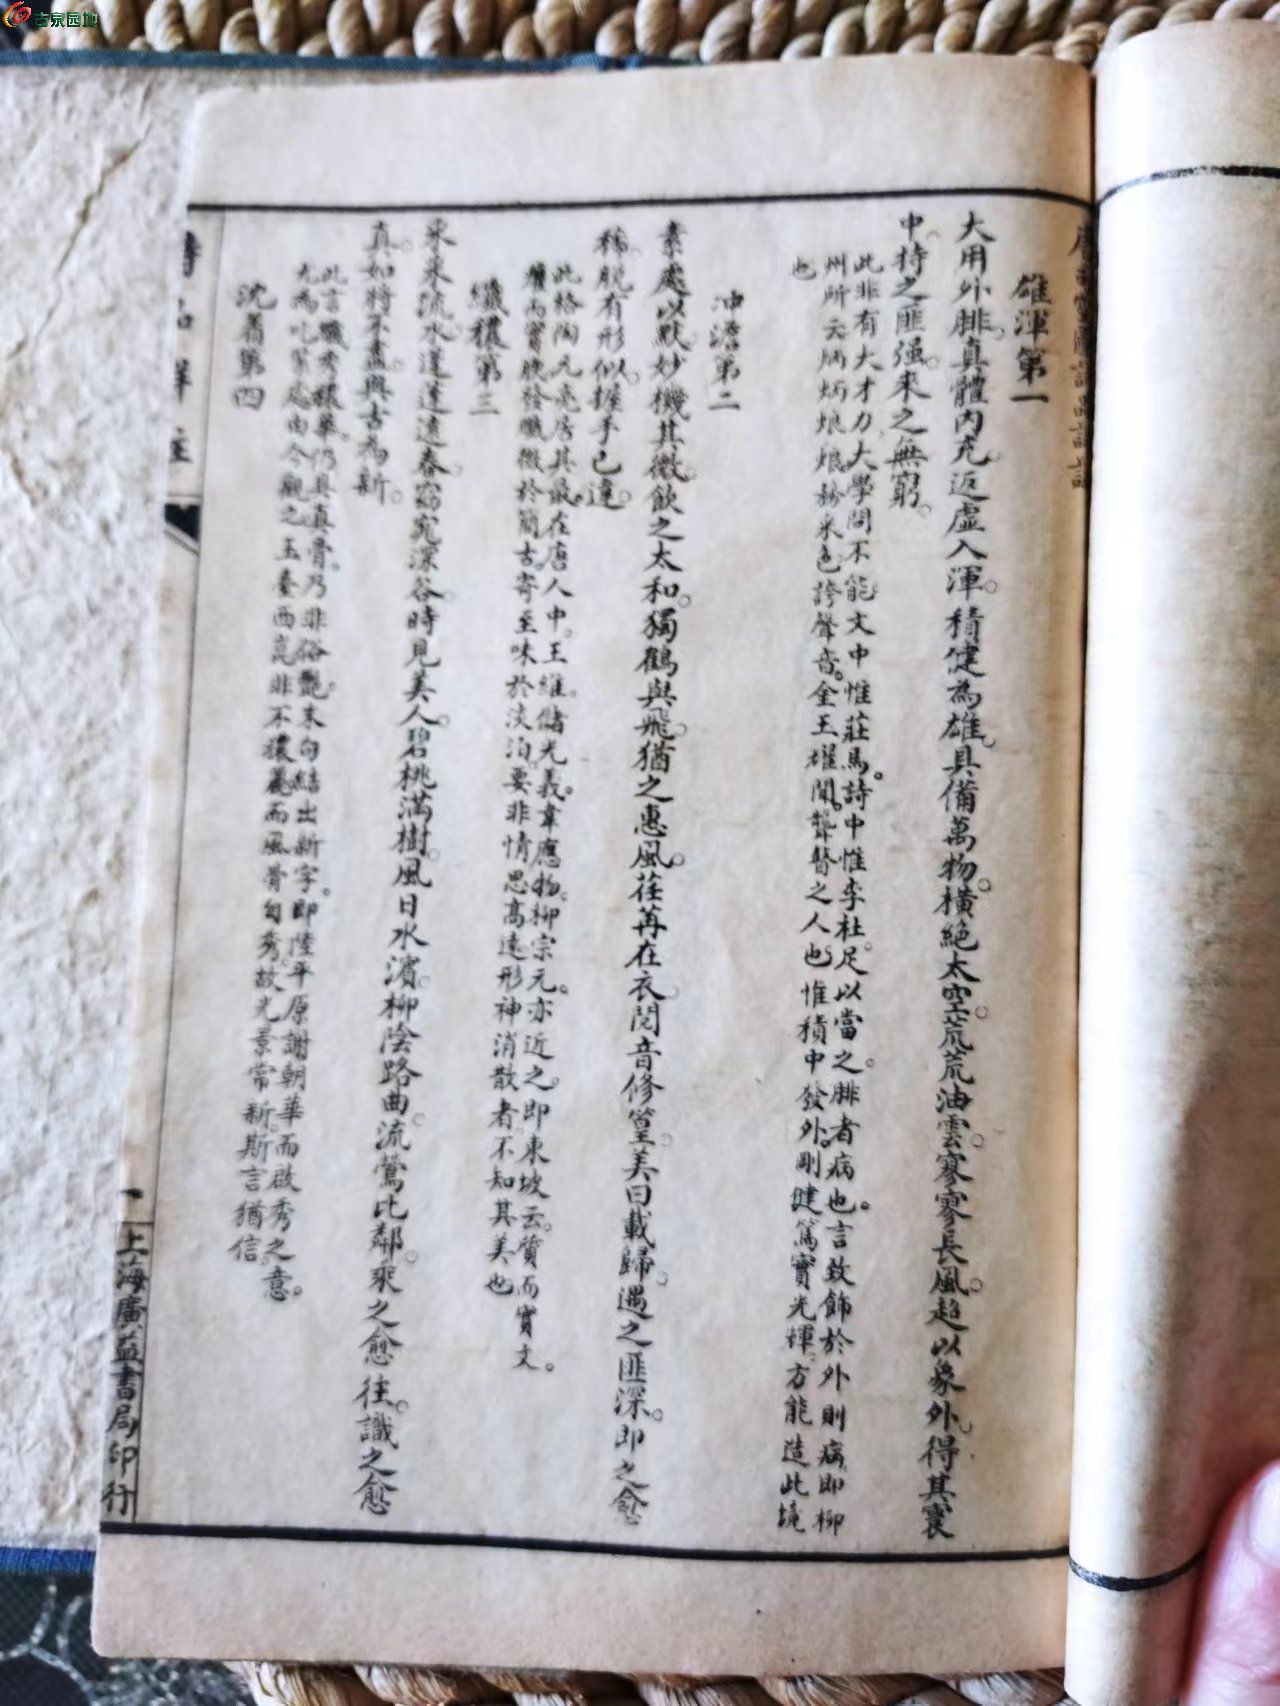 古泉园地
雄渾第一
大用外腓真體內充返虛入渾積健為雄具備萬物橫絕太空荒荒油雲寥寥長風超以象外得其寰
中持之匪强來之無窮
此非有大才力大學問不能文中惟莊馬詩中惟李杜足以當之腓者病也言致飾於外則病即柳
州所云炳炳烺烺務采色誇聲音金玉耀聞聾瞽之人也惟積中發外剛健篤實光輝方能造此境
也
沖澹第二
素處以默妙機其微飲之太和獨鶴與飛猶之惠風荏苒在衣閱音修篁美曰載歸遇之匪深即之愈
稀脫有形似握手已違
此格陶元亮居其最在唐人中王維儲光羲韋應物柳宗元亦近之即東坡云質而實文
癯而實腴發纖微於簡古寄至味於淡泊要非情思高遠形神消散者不知其美也
纖穠第三
采采流水蓬蓬遠春窈窕深谷時見美人碧桃滿樹風日水濱柳陰路曲流鶯比鄰乘之愈往識之愈
真如將不盡與古為新
此言纖秀穠華仍具真骨乃非俗艷末句結出新字即陸平原謝朝華而啟秀之意
尤為吃緊處由今觀之玉臺西崑非不穠麗而風骨自秀故光景常新斯言猶信
沈着第四
詩品詳註
一
上海廣益書局印行